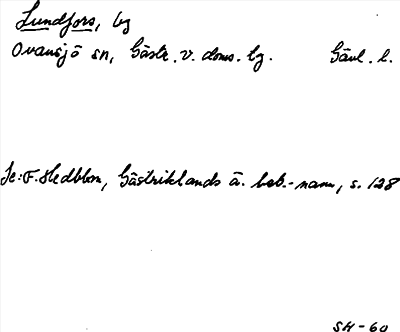 Lundfors, by
Ovansjö sn, Gästr. v. doms. bg. Gävl. l.
Se: F. Hedblom, Gästriklands ä. beb.-namn, s. 128
SH-60